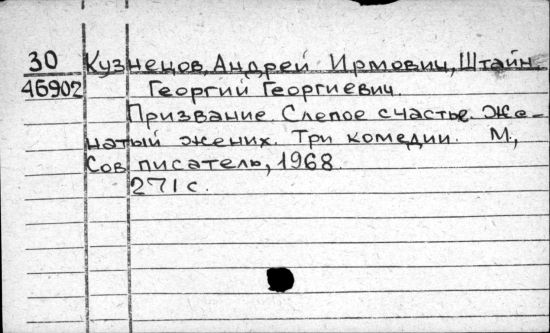 30 Кузнецов, Андрей Ирмович, Штайн
46902 Георгий Георгиевич.
Призвание. Слепое счастье. Же-
натый жених. Три комедии. М.,
Сов писатель, 1968.
271 с.